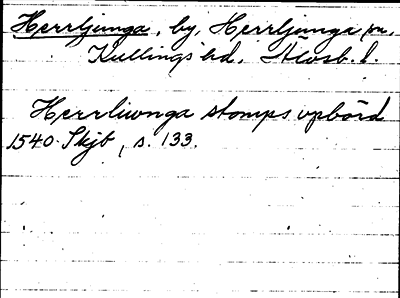 Herrljunga, by, Herrljunga sn,
Kullings hd, Älvsb. l.
Herrliunga stomps upbörd
1540. Skjb, s. 133.